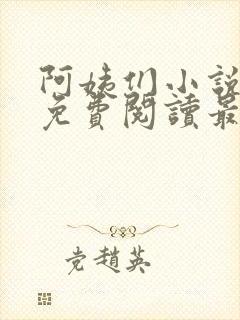 阿姨们小說
免費閱讀最
党趙英